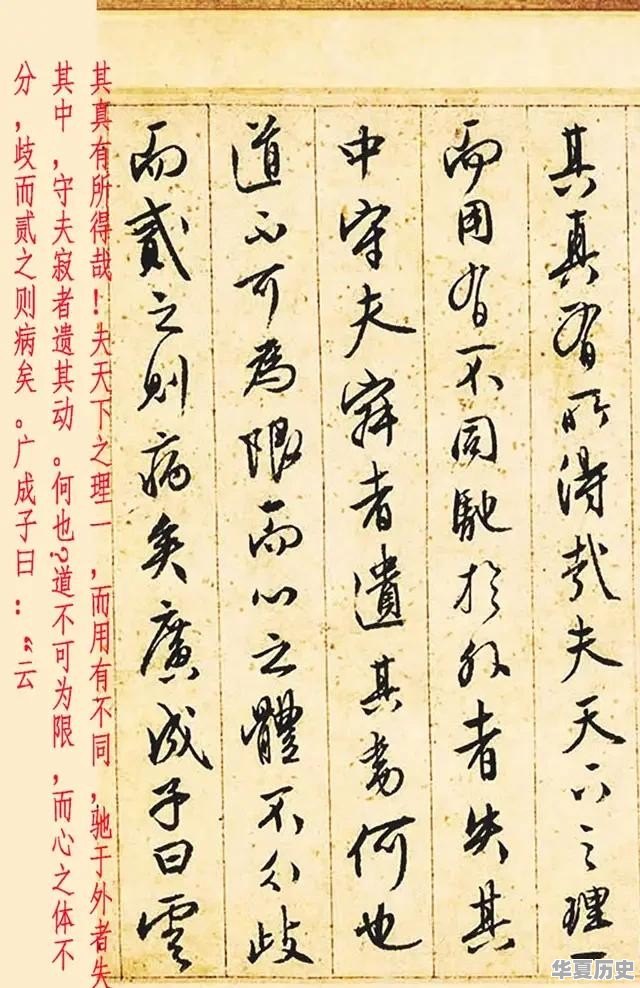 其真有所得哉夫天下之理一
而用有不同馳於外者失其
中守夫寂者遺其動何也
道不可為限而心之體不分歧
而貳之則病矣廣成子曰雲
其真有所得哉！夫天下之理一，而用有不同，驰于外者失
其中，守夫寂者遗其动。何也？道不可为限，而心之体不
分，歧而貳之则病矣。广成子曰：“云
华夏历史